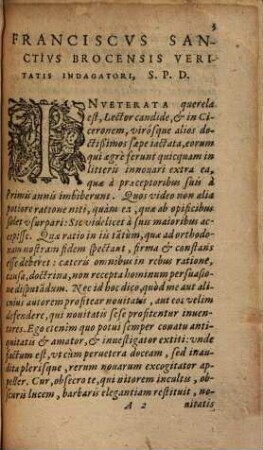 5
FRANCISCVS SAN-
CTIVS BROCENSIS VERI
TATIS INDAGATORI, S. P. D.
INVETERATA querela
est, Lector candide, & in Ci-
ceronem, virósque alios do-
ctissimos sæpe iactata, eorum
qui ægrè ferunt quicquam in
litteris innouari extra ea,
quæ à præceptoribus suis à
Primis annis imbiberunt. Quos video non alia
potiore ratione niti, quàm ex, quæ ab opificibus
solet vsurpari: Sic videlicet à suis maioribus ac-
cepisse. Quæ ratio in iis tãtùm, quæ ad orthodo-
xam nostram fidem spectant, firma & constans
esse deberet: cæteris omnibus in rebus ratione,
vsu, doctrina, non recepta hominum persuasio-
ne disputãdum. Nec id hoc dico, quòd me aut ali-
enius autorem profitear nouitatis, aut eos velim
defendere, qui nouitatis sese profitentur inuen-
tores. Ego etenim quo potui semper conatu anti-
quitatis & amator, & inuestigator extiti: vnde
factum est, vt cùm peruetera doceam, sed inau-
dita plerisque, rerum nouarum excogitator ap-
peller. Cur, obsecro te, qui nitorem incultis, ob-
scuris lucem, barbaris elegantiam restituit, no-
A 2 nitatis